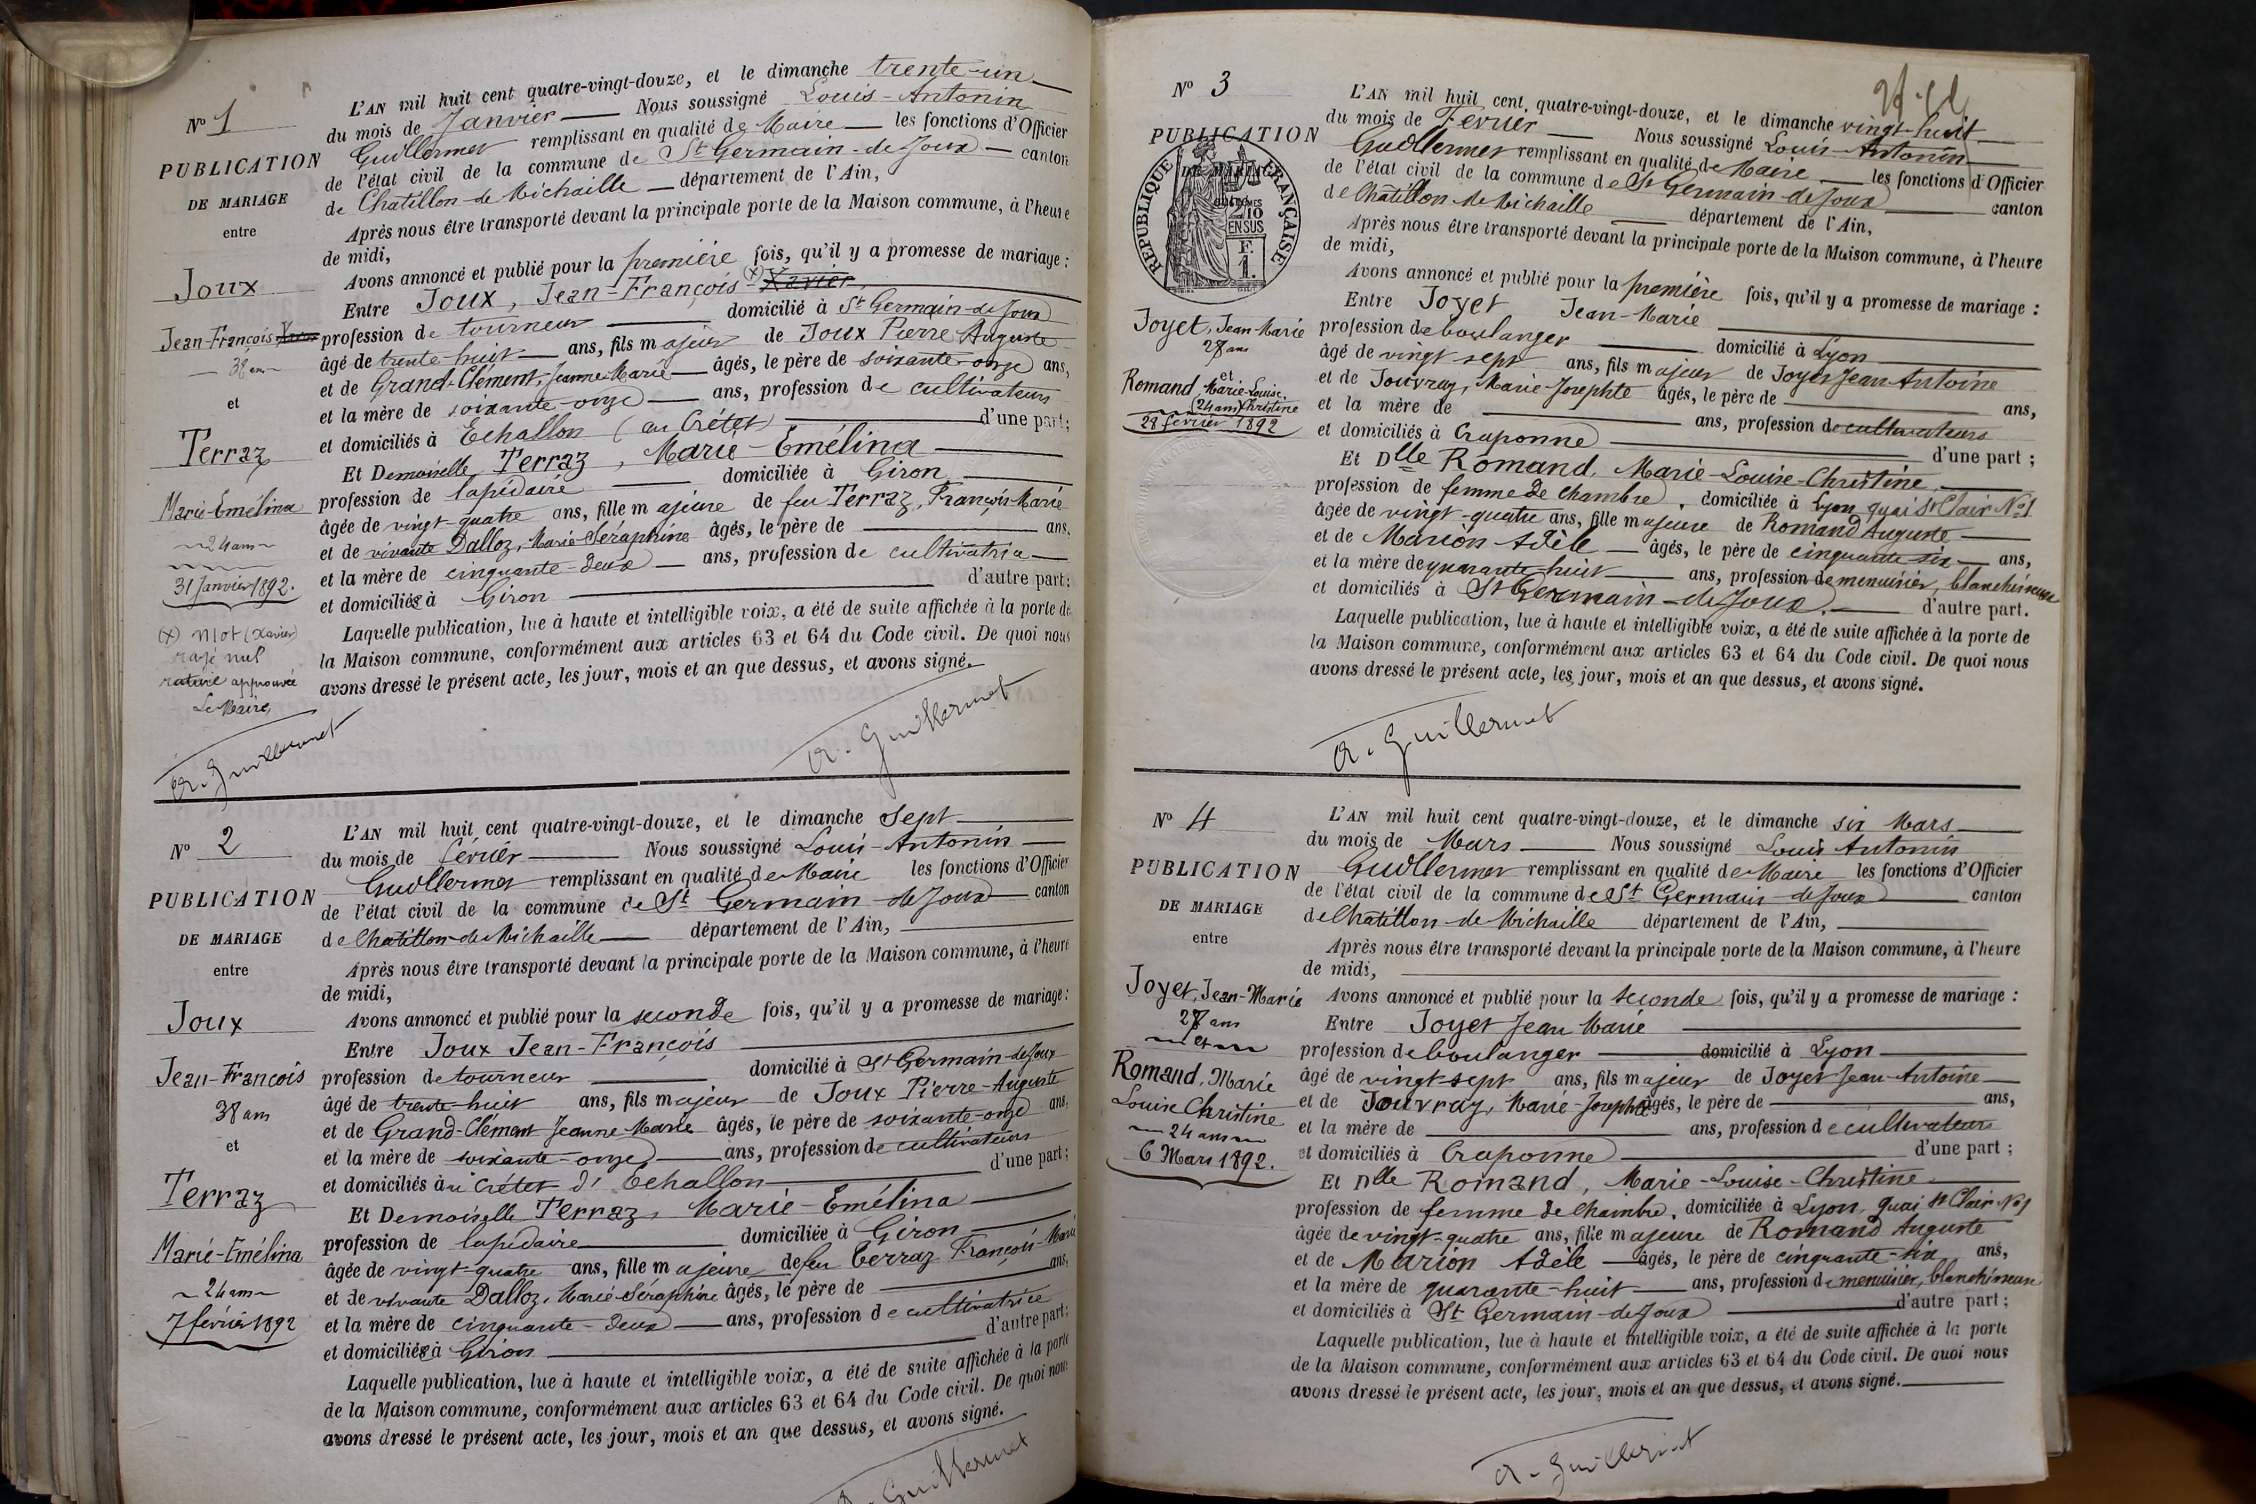 N° 1
PUBLICATION
DE MARIAGE
entre
Joux
Jean-François Xavier
38 ans
et
Terraz
Marie-Emélina
24 ans
31 Janvier 1892.
(X) Mot (Xavier)
rayé nul
rature approuvée
Le Maire,
A. Guillermet
L'AN mil huit cent quatre-vingt-douze, et le dimanche trente-un
du mois de Janvier Nous soussigné Louis-Antonin
Guillermet remplissant en qualité de Maire les fonctions d'Officier
de l'état civil de la commune de St Germain-de-Joux canton
de Chatillon-de-Michaille département de l'Ain,
Après nous être transporté devant la principale porte de la Maison commune, à l'heure
de midi,
Avons annoncé et publié pour la première fois, qu'il y a promesse de mariage :
Entre Joux, Jean-François-(X) Xavier
profession de tourneur domicilié à St Germain-de-Joux
âgé de trente-huit ans, fils majeur de Joux Pierre Auguste
et de Grand-Clément, Jeanne-Marie âgés, le père de soixante-onze ans,
et la mère de soixante-onze ans, profession de cultivateurs
et domiciliés à Echallon (au Crétet) d'une part;
Et Demoiselle Terraz, Marie-Emélina
profession de lapidaire domiciliée à Giron
âgée de vingt-quatre ans, fille majeure de feu Terraz, François-Marie
et de vivante Dalloz, Marie-Séraphine âgés, le père de ans,
et la mère de cinquante-deux ans, profession de cultivatrice
et domiciliés à Giron d'autre part;
Laquelle publication, lue à haute et intelligible voix, a été de suite affichée à la porte de
la Maison commune, conformément aux articles 63 et 64 du Code civil. De quoi nous
avons dressé le présent acte, les jour, mois et an que dessus, et avons signé.
A. Guillermet
N° 2
PUBLICATION
DE MARIAGE
entre
Joux
Jean-François
38 ans
et
Terraz
Marie-Emélina
24 ans
7 février 1892
L'AN mil huit cent quatre-vingt-douze, et le dimanche sept
du mois de février Nous soussigné Louis-Antonin
Guillermet remplissant en qualité de Maire les fonctions d'Officier
de l'état civil de la commune de St Germain-de-Joux canton
de Chatillon-de-Michaille département de l'Ain,
Après nous être transporté devant la principale porte de la Maison commune, à l'heure
de midi,
Avons annoncé et publié pour la seconde fois, qu'il y a promesse de mariage:
Entre Joux Jean-François
profession de tourneur domicilié à St Germain-de-Joux
âgé de trente-huit ans, fils majeur de Joux Pierre-Auguste
et de Grand-Clément Jeanne Marie âgés, le père de soixante-onze ans,
et la mère de soixante-onze ans, profession de cultivateurs
et domiciliés au Crétet d'Echallon d'une part;
Et Demoiselle Terraz, Marie-Emélina
profession de lapidaire domiciliée à Giron
âgée de vingt-quatre ans, fille majeure de feu Terraz François-Marie
et de vivante Dalloz, Marie-Séraphine âgés, le père de ans,
et la mère de cinquante-deux ans, profession de cultivatrice
et domiciliés à Giron d'autre part;
Laquelle publication, lue à haute et intelligible voix, a été de suite affichée à la porte
de la Maison commune, conformément aux articles 63 et 64 du Code civil. De quoi nous
avons dressé le présent acte, les jour, mois et an que dessus, et avons signé.
A. Guillermet
N° 3
PUBLICATION
DE MARIAGE
REPUBLIQUE FRANÇAISE
2/10
EN SUS
F.
1.
Joyet, Jean-Marie
27 ans
et
Romand, Marie-Louise,
24 ans Christine
28 février 1892
L'AN mil huit cent quatre-vingt-douze, et le dimanche vingt-huit
du mois de Février Nous soussigné Louis-Antonin
Guillermet remplissant en qualité de Maire les fonctions d'Officier
de l'état civil de la commune de St Germain-de-Joux canton
de Chatillon-de-Michaille département de l'Ain,
Après nous être transporté devant la principale porte de la Maison commune, à l'heure
de midi,
Avons annoncé et publié pour la première fois, qu'il y a promesse de mariage :
Entre Joyet Jean-Marie
profession de boulanger domicilié à Lyon
âgé de vingt sept ans, fils majeur de Joyet Jean Antoine
et de Jouvray, Marie Josephte âgés, le père de ans,
et la mère de ans, profession de cultivateurs
et domiciliés à Craponne d'une part ;
Et Dlle Romand, Marie-Louise-Christine
profession de femme de chambre, domiciliée à Lyon quai St Clair N°1
âgée de vingt-quatre ans, fille majeure de Romand Auguste
et de Marion Adèle âgés, le père de cinquante six ans,
et la mère de quarante-huit ans, profession de menuisier, blanchisseuse
et domiciliés à St Germain-de-Joux. d'autre part.
Laquelle publication, lue à haute et intelligible voix, a été de suite affichée à la porte de
la Maison commune, conformément aux articles 63 et 64 du Code civil. De quoi nous
avons dressé le présent acte, les jour, mois et an que dessus, et avons signé.
A. Guillermet
N° 4
PUBLICATION
DE MARIAGE
entre
Joyet, Jean-Marie
27 ans
et
Romand, Marie
Louise Christine
24 ans
6 Mars 1892.
L'AN mil huit cent quatre-vingt-douze, et le dimanche six Mars
du mois de Mars Nous soussigné Louis Antonin
Guillermet remplissant en qualité de Maire les fonctions d'Officier
de l'état civil de la commune de St Germain-de-Joux canton
de Chatillon-de-Michaille département de l'Ain,
Après nous être transporté devant la principale porte de la Maison commune, à l'heure
de midi,
Avons annoncé et publié pour la seconde fois, qu'il y a promesse de mariage :
Entre Joyet Jean Marie
profession de boulanger domicilié à Lyon
âgé de vingt-sept ans, fils majeur de Joyet Jean-Antoine
et de Jouvray, Marie-Josephte âgés, le père de ans,
et la mère de ans, profession de cultivateurs
et domiciliés à Craponne d'une part ;
Et Dlle Romand, Marie-Louise-Christine
profession de femme de chambre, domiciliée à Lyon, quai St Clair N°1
âgée de vingt-quatre ans, fille majeure de Romand Auguste
et de Marion Adèle âgés, le père de cinquante-six ans,
et la mère de quarante-huit ans, profession de menuisier, blanchisseuse
et domiciliés à St Germain-de-Joux d'autre part ;
Laquelle publication, lue à haute et intelligible voix, a été de suite affichée à la porte
de la Maison commune, conformément aux articles 63 et 64 du Code civil. De quoi nous
avons dressé le présent acte, les jour, mois et an que dessus, et avons signé.
A. Guillermet